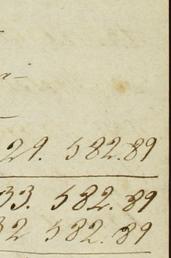 29. 582.89
33. 582.89
32 582.89